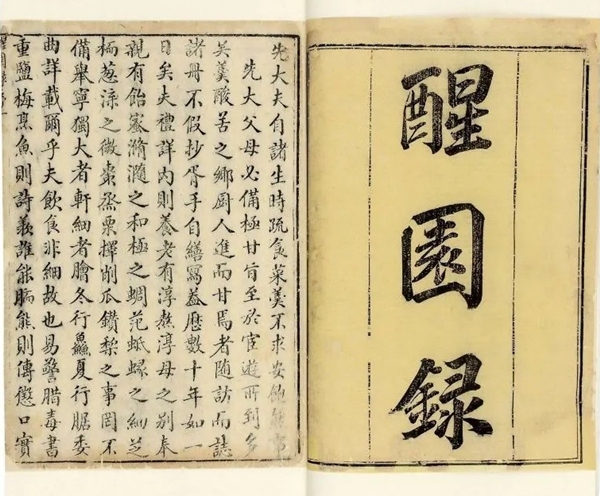 醒園録
先大夫自諸生時疏食菜羹不求安飽然事
先大父母必備極甘旨至於宦遊所到多
吳羹酸苦之鄉厨人進而甘焉者隨訪而誌
諸冊不假抄胥手自繕寫蓋歷數十年如一
日矣夫禮詳内則養老有淳熬淳母之别奉
親有飴蜜滫瀡之和極之蜩范蚳蝝之細芝
栭葱渿之微棗烝栗擇削瓜鑽梨之事罔不
備舉寧獨大者軒細者膾冬行鱻夏行腒委
曲詳載爾乎夫飲食非細故也易警腊毒書
重鹽梅烹魚則詩羨誰能胹熊則傳懲口實